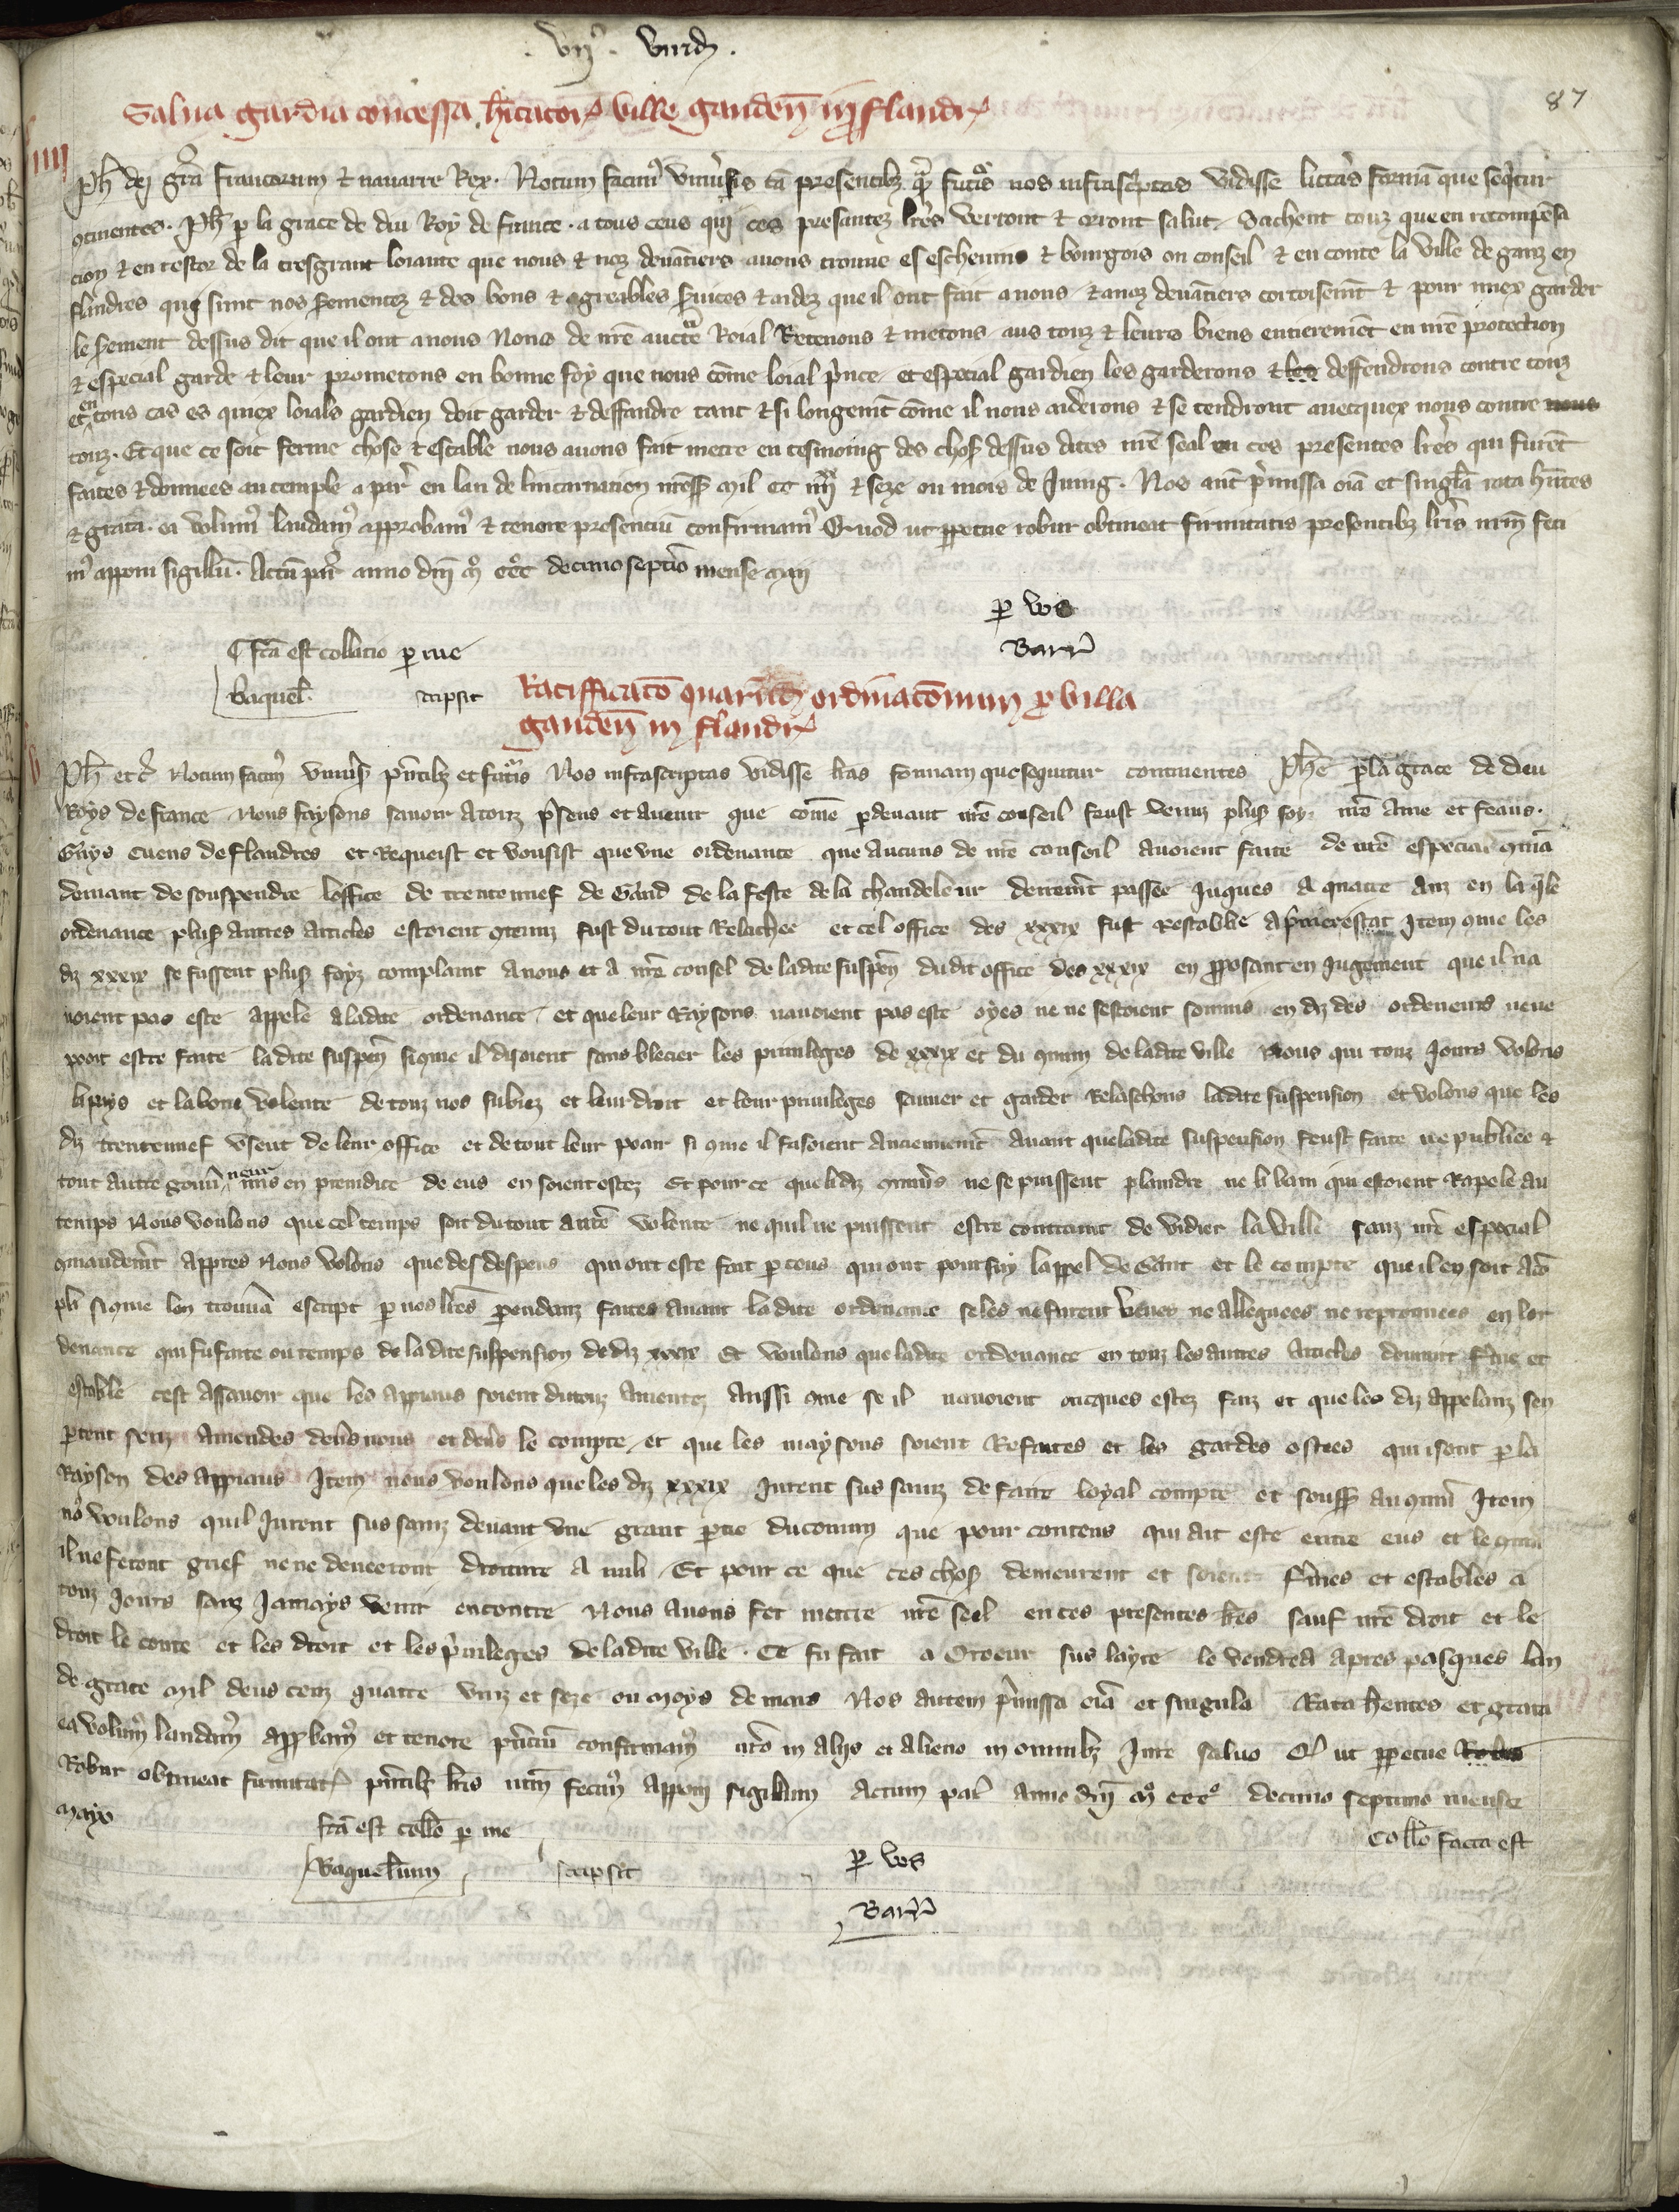 87
Salva gardia concessa h̄itator᷑ ville ganden̄ in flandr᷑
IIII
Ph̄ dei gr̄a francorum & navarre Rex. Notum facimꝰ universis tā presentibꝫ qͣ̄ futuris nos infrascriptas vidisse litteras formā que sequitur
ꝯtinentes. Ph̄ ꝑ la grace de diu Roy de france. a tous ceus qui ces presantez lr̄es verront & orront salut. Sachent touz que en recompēsa
cion & en restor de la tresgrant loiaute que nous & noz devātiers avons trouve es eschevins & bourgois ou conseil & en conte la ville de ganz en
flandres qui sunt nos sermentez & des bons & agreables services & aidez que il ont fait a nous & a noz devātiers cortoisemt̄ & pour miex garder
le serment dessus dit que il ont a nous Nous de nr̄e aucte Roial Retenons & metons aus touz & leurs biens entieremēt en nr̄e protection
& especial garde & leur prometons en bonne foy que nous cōme loial prince et especial gardien les garderons & les deffendrons contre touz
et en tous cas es quiex loials gardien doit garder & deffandre tant & si longemt̄ cōme il nous aiderons & se tendront avecquex nous contre nous
touz. Et que ce soit ferme chose & estable nous avons fait metre en tesmoing des chos dessus dites nr̄e seal en ces presentes lr̄es qui furēt
faites & donnees au temple a par᷑ en lan de lincarnation nr̄e sꝫ mil cc iiiixx & seze ou mois de Juing. Nos aut̄ p̄missa oīa et singl̄a rata h̄ntes
& grata. ea volumꝰ laudamꝰ approbamꝰ & tenore presenciū confirmamꝰ Quod ut ꝑpetue robur obtineat firmitatis presentibꝫ lr̄is nr̄m feci
mꝰ apponi sigillū. Actū par᷑ anno dn̄i mͦ cccͦ decimo septīo mense maii
ꝑ vos
Barr᷑
fc̄a est collatio ꝑ me
baquel̄. scripsit
Ratifficatō quarūdā ordinatōnum ꝓ villa
ganden̄ in flandr᷑
Ph̄ et c̄ Notum facimꝰ univers̄ pn̄tibꝫ et futuris Nos infrascriptas vidisse lr̄as formam que sequitur continentes Ph̄e ꝑ la grace de deu
Roys de france Nous faysons savoir a touz p̄sens et avenir que cōme ꝑdevant nr̄e conseil feust venuz plus̄ foyz nr̄e ame et feaus.
Guys cuens de flandres et Requeist et vousist que une ordenance que aucuns de nr̄e conseil avoient faite de nr̄e especial ꝯmā
demant de souspendre loffice de trentenuef de Gand de la feste de la chandeleur derremt̄ passee Juques a quatre anz en la q̄le
ordenance plus̄ autres articles estoient ꝯtenuz fust du tout Relachee et cel office des xxxix fust Restablie a p̄mier estat Item ꝯme les
dz xxxix se fussent plus̄ foyz complaint a nous et a nr̄e consel de ladite suspēn dudit office des xxxix en ꝓposant en Jugement que il na
voient pas este appele a ladite ordenance et que leur Raysons navoient pas este oyes ne ne sestoient soumis en diz des ordeneurs neve
pooit estre faite ladite suspēn siꝯme il disoient sans blecier les privileges de xxxix et du ꝯmun de ladite ville Nous qui touz Jours volons
la pays et la bone volente de touz nos subiez et leur droit et leur privileges sauver et garder Relaschons ladite suspension et volons que les
dz trentenuef usent de leur office et de tout leur poair si ꝯme il fasoient anciennemt̄ avant que ladite suspension feust faite ne publiee &
tout autre gouv̄neur mis en preiudice de eus en soient ostez Et pour ce que li dz ꝯmuns ne se puissent plaindre ne li bani qui estoient Rapele au
temps Nous voulons que cel temps soit du tout a nr̄e volente ne quil ne puissent estre contraint de vidier la ville sanz nr̄e especial
ꝯmandemt̄ Apptes Nous volons que des despens qui ont este fait ꝑ ceus qui ont poursuy lappel de Gant et le compte que il en soit acō
pli siꝯme len trouvā escript ꝑ nos lr̄es ꝑendanz faites avant ladite ordenance se les ne furent veues ne alleguees ne reprouvees en lor
denance qui fu faite ou temps de ladite suspension de dz xxxix Et voulons que ladite ordenance en touz les autres articles demurt f̄me et
estable cest assavoir que les appiaus soient du touz anientez aussi ꝯme se il navoient oncques estez faiz et que les dz appelanz sen
ꝑtent senz amendes devers nous et devers le compte et que les maysons soient Refaites et les gardes ostees qui i sont ꝑ la
Rayson des appiaus Item nous voulons que les dz xxxix Jurent sus sainz de faire loyal compte et souff̄ au ꝯmun Item
noꝰ voulons quil Jurent sus sainz devant une grant ꝑtie du comun que pour contens qui ait este entre eus et le ꝯmun
il ne feront grief ne ne deneeront droiture a nuli. Et pour ce que ces chos̄ demeurent et soient f̄mes et estables a
touz Jours sanz Jamays venir encontre Nous avons fet mettre nr̄e seel en ces presentes lr̄es sauf nr̄e droit et le
droit le conte et les droit et les p̄vileges de ladite ville. Ce fu fait a Croeur sus layte le vendredi apres pasques lan
de grace mil deus cenz quatre vinz et seze ou moys de mars Nos autem p̄missa oīa et singula Rata h̄entes et grata
ea volumꝰ laudamꝰ approbamꝰ et tenore pn̄ciū confirmamꝰ nr̄o in aliis et alieno in omnibꝫ Jure salvo Qd ut ꝑpetue Robus
Robur obtineat firmitat᷑ pn̄tibꝫ lr̄is nr̄m fecimꝰ apponi sigillum Actum par᷑ anno dn̄i mͦ cccͦ decimo septimo mense
mayo
fc̄a est collō ꝑ me
Collō facta est
Baquel̄um scripsit
ꝑ vos
Barr᷑